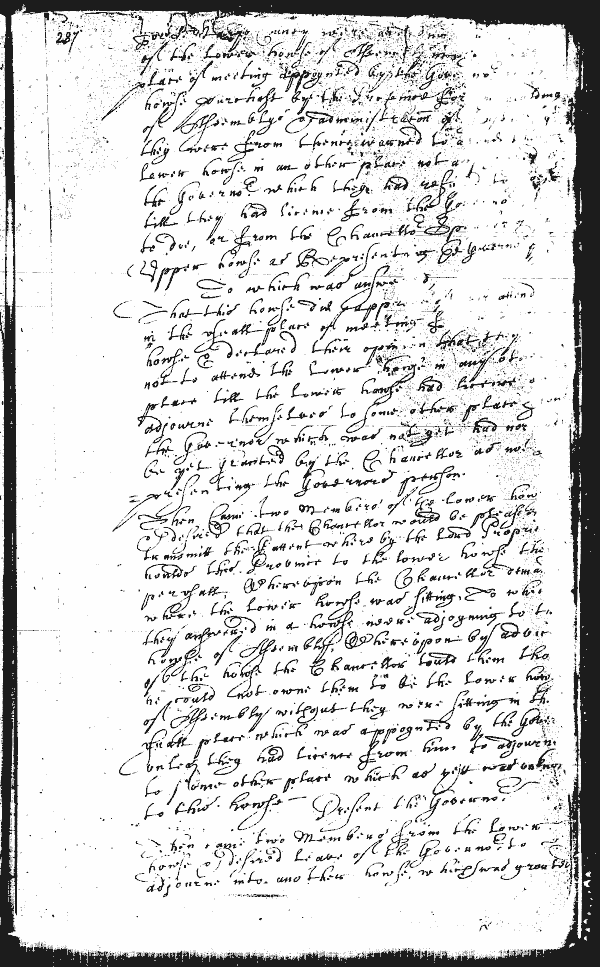 287
of the Lower howse of Assembly
place of meeting appoynted by the Gove no
howse purchast by the
of Assemblys & administration of
they were from thence warned to a
lower howse in an other place not a
the Governor which they had
till they had licence from the Go no
to doe, or from the Chancellor
Upper howse as Representing
To which was answe d,
That this howse did appe attend
in the usuall place of meeting
howse & declared their opin n that they
not to attend the Lower howse in any ot
place till the Lower howse had licence
adjourne themselves to some other place
the Governor which was not yet had nor
be yet graunted by the Chancellor as not
presenting the Governors person.
Then came two Members of the lower how
& desired that the Chancellor would be pleased
transmitt the Pattent whereby the Lord Proprie
houlds this Province to the lower howse the
perusall Whereupon the Chancellor dema
where the lower howse was sitting. To whi
they answered in a howse neere adjoyning to t
howse of Assembly, Whereupon by advic
of the howse the Chancellor tould them tha
he could not owne them to be the lower how
of Assembly without they were sitting in th
usuall place which was appoynted by the Gove
unles they had licence from him to adjourn
to some other place which as yett was unknow
to this howse Present the Governor
Then came two Members from the Lower
howse & desired leave of the Governor to
adjourne into another howse, which was graunted